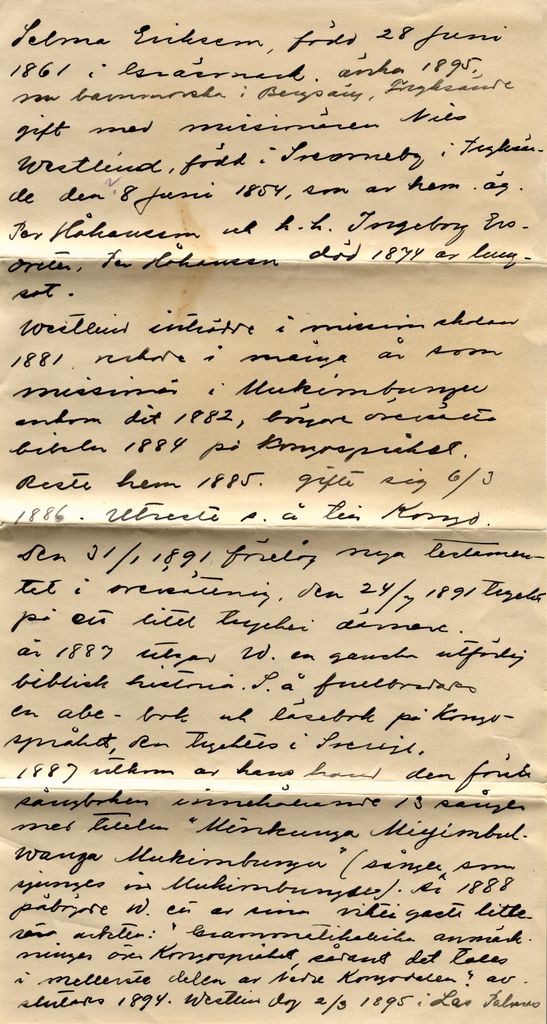 Selma Eriksson, född 28 juni
1861 i Gräsmark. änka 1895,
nu barnmorska i Bergsäng, Fryksände
gift med missionären Nils
Westlind, född i Svarneby i Fryksän-
de den 8 juni 1854, son av hem. äg.
Per Håkansson och h. h. Ingeborg Ers-
dotter, Per Håkansson död 1874 av lung-
sot.
Westlind inträdde i missionsskolan
1881 verkade i många år som
missionär i Mukimbungu
ankom dit 1882, började översätta
bibeln 1884 på Kongospråket.
Reste hem 1885. gifte sig 6/3
1886. Utreste s. å till Kongo.
Den 31/1 1891 förelåg nya testamen-
tet i översättning, den 24/7 1891 tryckt
på ett litet tryckeri därnere.
år 1887 utgav W. en ganska utförlig
biblisk historia. S. å fullbordades
en abc-bok och läsebok på Kongo-
språket, den trycktes i Sverige.
1887 utkom av hans hand den första
sångboken innehållande 13 sånger
med titeln "Minkunga Miyimbul-
wanga Mukimbungu" (sånger, som
sjunges in Mukimbungu). År 1888
påbörjade W. ett av sina viktigaste litte-
rära arbeten: "Grammatikaliska anmärk-
ningar över Kongospråket, sådant det talas
i mellersta delen av Nedre Kongodalen" av-
slutades 1894. Westlind dog 2/3 1895 i Las Palmas